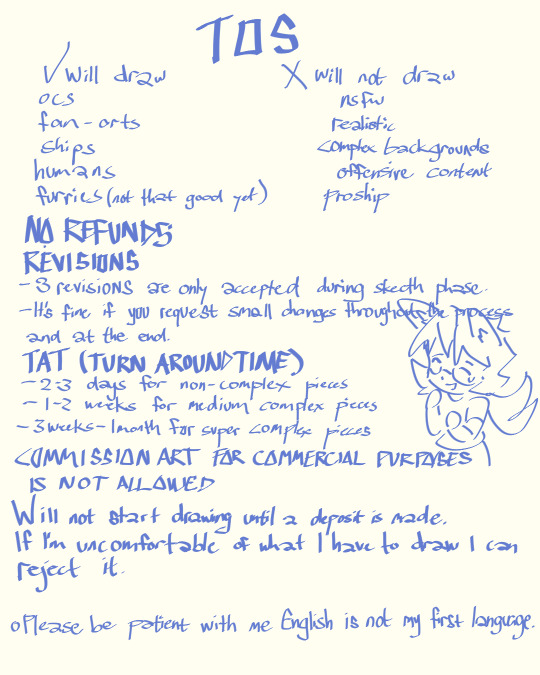 TOS
✓ Will draw
ocs
fan-arts
ships
humans
furries (not that good yet)
X will not draw
nsfw
realistic
complex backgrounds
offensive content
proship
NO REFUNDS
REVISIONS
- 3 revisions are only accepted during skecth phase.
- It's fine if you request small changes throughout the process
and at the end.
TAT (TURN AROUND TIME)
- 2-3 days for non-complex pieces
- 1-2 weeks for medium complex pieces
- 3 weeks - 1 month for super complex pieces
COMMISSION ART FOR COMMERCIAL PURPOSES
IS NOT ALLOWED
Will not start drawing until a deposit is made.
If I'm uncomfortable of what I have to draw I can
reject it.
o Please be patient with me English is not my first language.